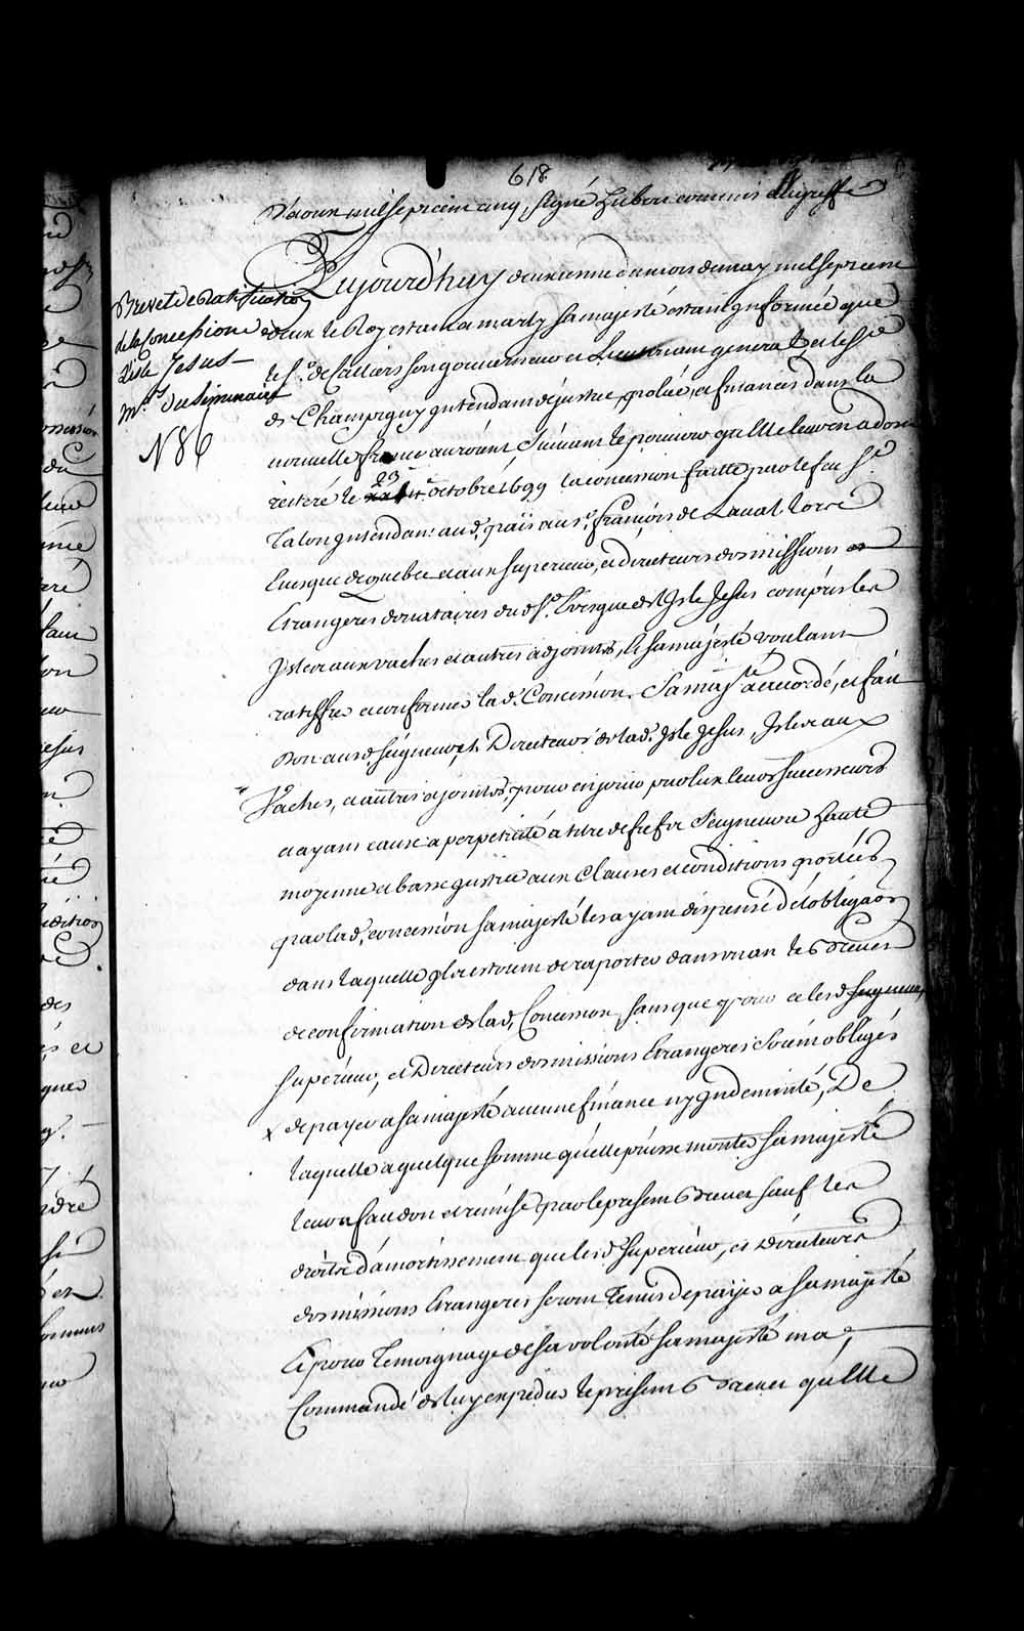 618
d'aoust mil sept cent cinq, signé hubou commis au greffe
Brevet de Ratification
de la Concession de
L'isle Jesus
M.rs du Seminaire
N 86
Aujourd'huy deuxieme du mois de may mil sept cent
deux le Roy estant a marly sa majesté estant Informée que
le S.r de Callieres son gouverneur et Lieutenant general et le S.r
de Champigny Intendant de justice, police, et finances dans la
nouvelle france auroient Suivant le pouvoir qu'Elle leur en a donné
reiteré le 23 octobre 1699 la concession faitte par le feu S.r
Talon Intendant aud. païs au S.r françois de Laval lors
Evesque de quebec et aux superieur, et directeurs des missions
Etrangeres donataires dud. S.r Evesque de l'Isle Jesus compris les
Isles aux vaches et autres adjointes, Et sa majesté voulant
ratiffier et confirmer lad. Concession. Sa maj.té a accordé, et fait
don aux d. seigneurs Directeurs de lad. Isle Jesus, Isles aux
Vaches, et autres ajointes, pour en jouir par eux leurs successeurs
et ayans cause a perpetuité a titre de fief et Seigneurie haute
moyenne et basse justice aux Clauses et conditions portées
par lad. concession sa majesté les ayant dispensé de l'obliga.on
dans laquelle Ils estoient de raporter dans un an le brevet
de confirmation de lad. Concession, sans que pour ce les d. seigneurs
superieur, et Directeurs des missions Etrangeres soient obligés
x de payer a sa majesté aucune finance ny Indemnité, De
laquelle a quelque somme qu'elle puisse monter sa majesté
leur en fait don et remise par le present brevet sauf les
droits d'amortissement que les d. superieur, et directeurs
des missions Etrangeres seront Tenus de payer a sa majesté
Et pour temoignage de sa volonté sa majesté m'a
Commandé de luy expedier le present brevet qu'Elle